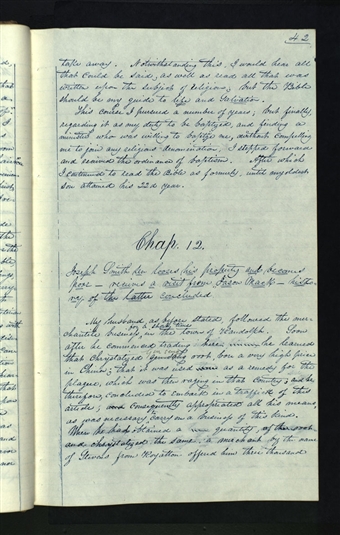 42
take away. Notwithstanding this, I would hear all
that could be said, as well as read all that was
written upon the subject of religion; but the Bible
should be my guide to life and Salvation.
This course I pursued a number of years; but finally,
regarding it as my duty to be baptized, and finding a
minister who was willing to baptize me, without compelling
me to join any religious denomination, I stepped forward
and received the ordinance of baptism. After which
I continued to read the Bible as formerly, until my oldest
son attained his 22d year.
Chap. 12.
Joseph Smith Sen looses his property and becomes
poor — receives a visit from Jason Mack — histo
ry of the latter concluded
My husband, as before stated followed the mer-
chantile business for a short time in the town of Randolph. Soon
after he commenced trading he learned
that chrystalized root, bore a very high price
in China; that it was used as a remedy for the
plague, which was then raging in that Country; and he
therefore concluded to embark in a traffic of this
article; Consequently appropriated all his means,
as was necessary carry on a business of this kind.
When he had obtained a quantity of the root
and chrystalized the same, a merchant by the name
of Stevens from Royalton offered him three thousand